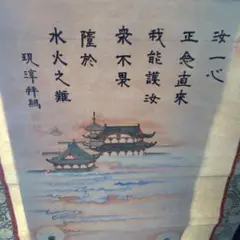 汝一心
正念直來
我能護汝
衆不畏
墮於
水火之難
現淳拜